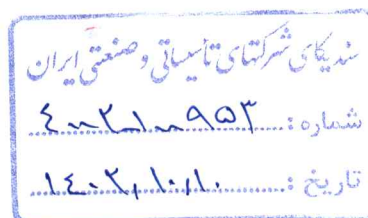 سندیکای شرکتهای تأسیساتی و صنعتی ایران
شماره: ۴۰۰۲۰۱۰۰۹۵۳
تاریخ: ۱۴۰۲,۱۰,۱۰